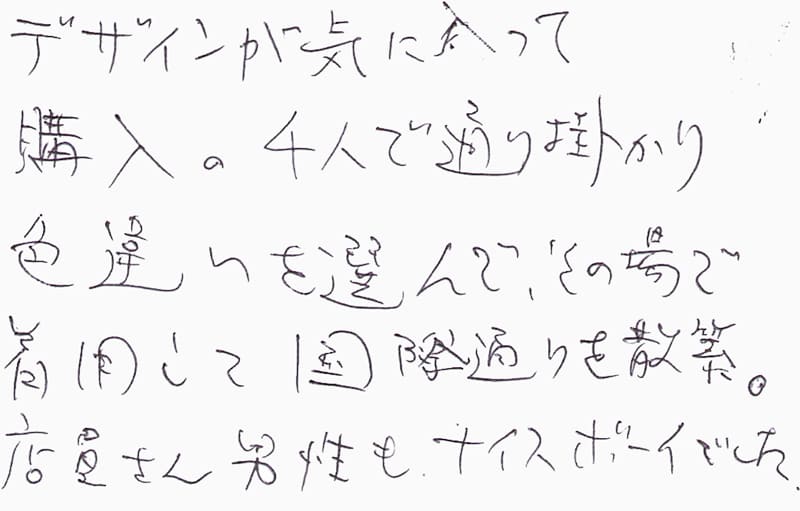 デザインが気に入って
購入。4人で通り掛かり
色違いを選んで、その場で
着用して国際通りを散策。
店員さん男性も、ナイスボーイでした.